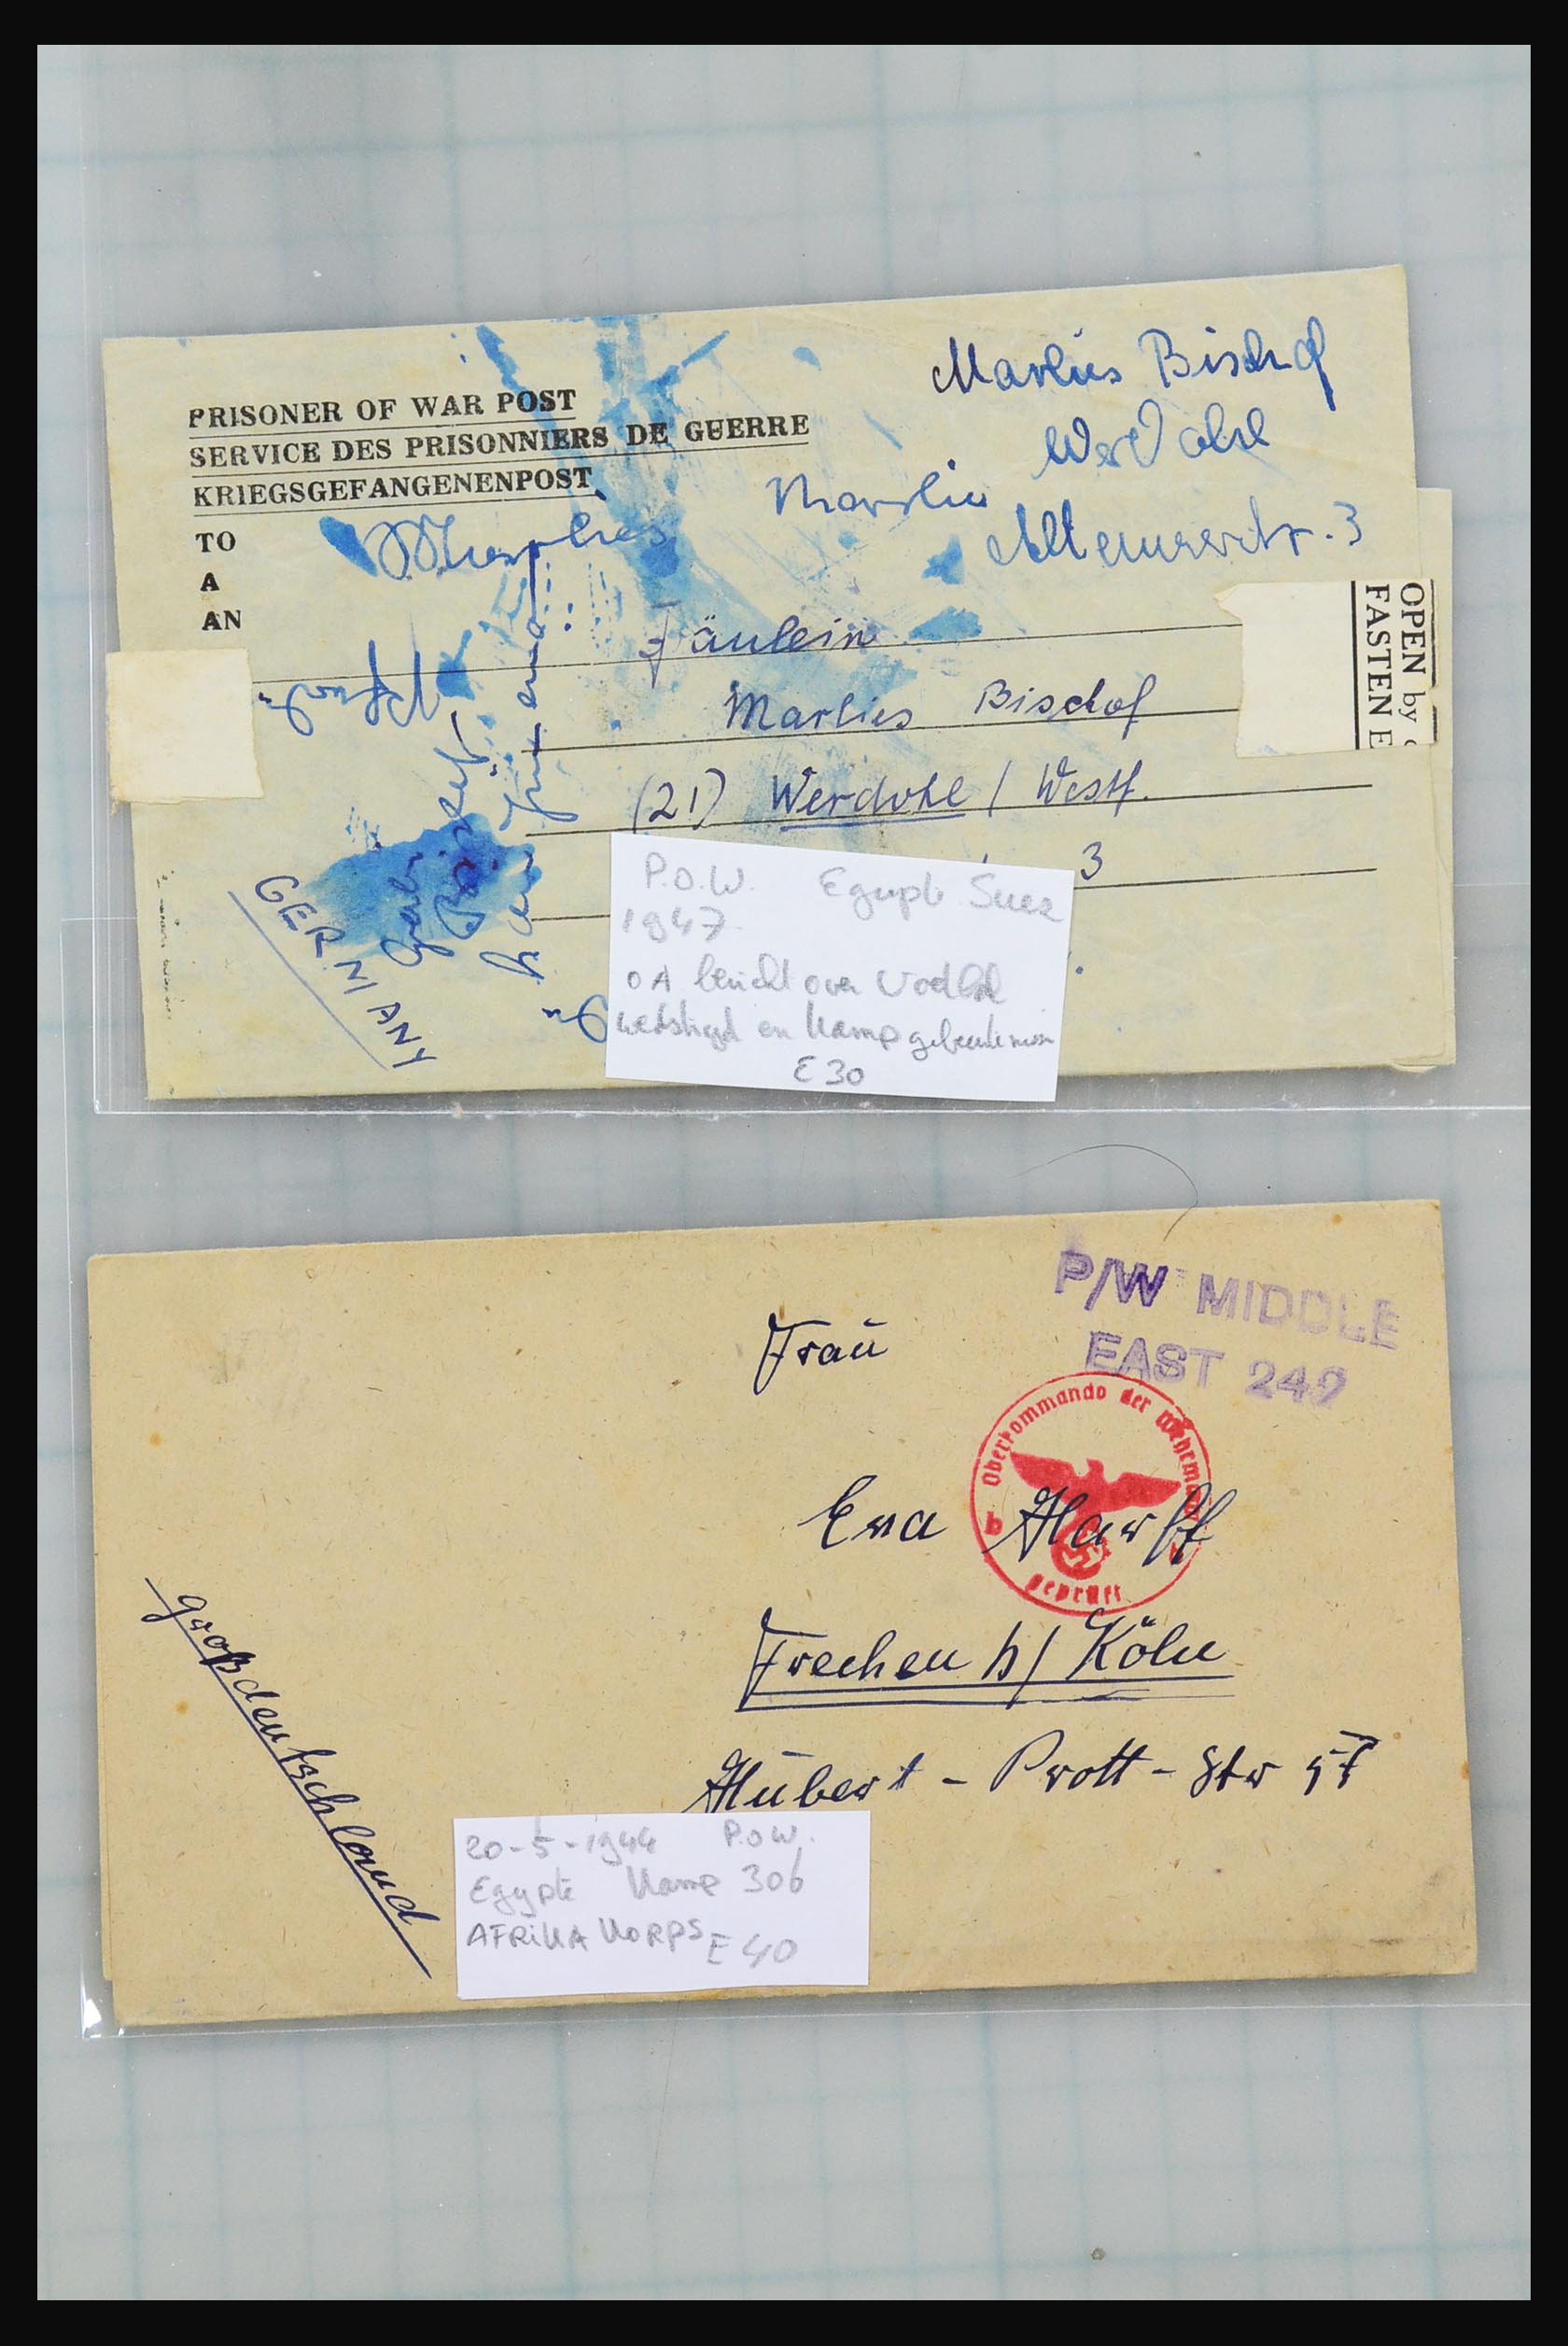 PRISONER OF WAR POST
SERVICE DES PRISONNIERS DE GUERRE
KRIEGSGEFANGENENPOST
TO
A
AN
Marlies Bischof
Werdohl
Marlies
3
Fräulein
Marlies Bischof
(21) Werdohl / Westf.
3
GERMANY
OPEN by
FASTEN E
P.O.W. Egypte Suez
1947
OA bericht over Voetbal
wedstrijd en Kamp
E 30
P/W MIDDLE
EAST 249
Frau
Oberkommando der Wehrma
b
geprüft
Eva Harff
Frechen b/ Köln
Hubert - Prott - Str 57
Großdeutschland
20-5-1944 P.O.W.
Egypte Kamp 306
AFRIKA KORPS E 40